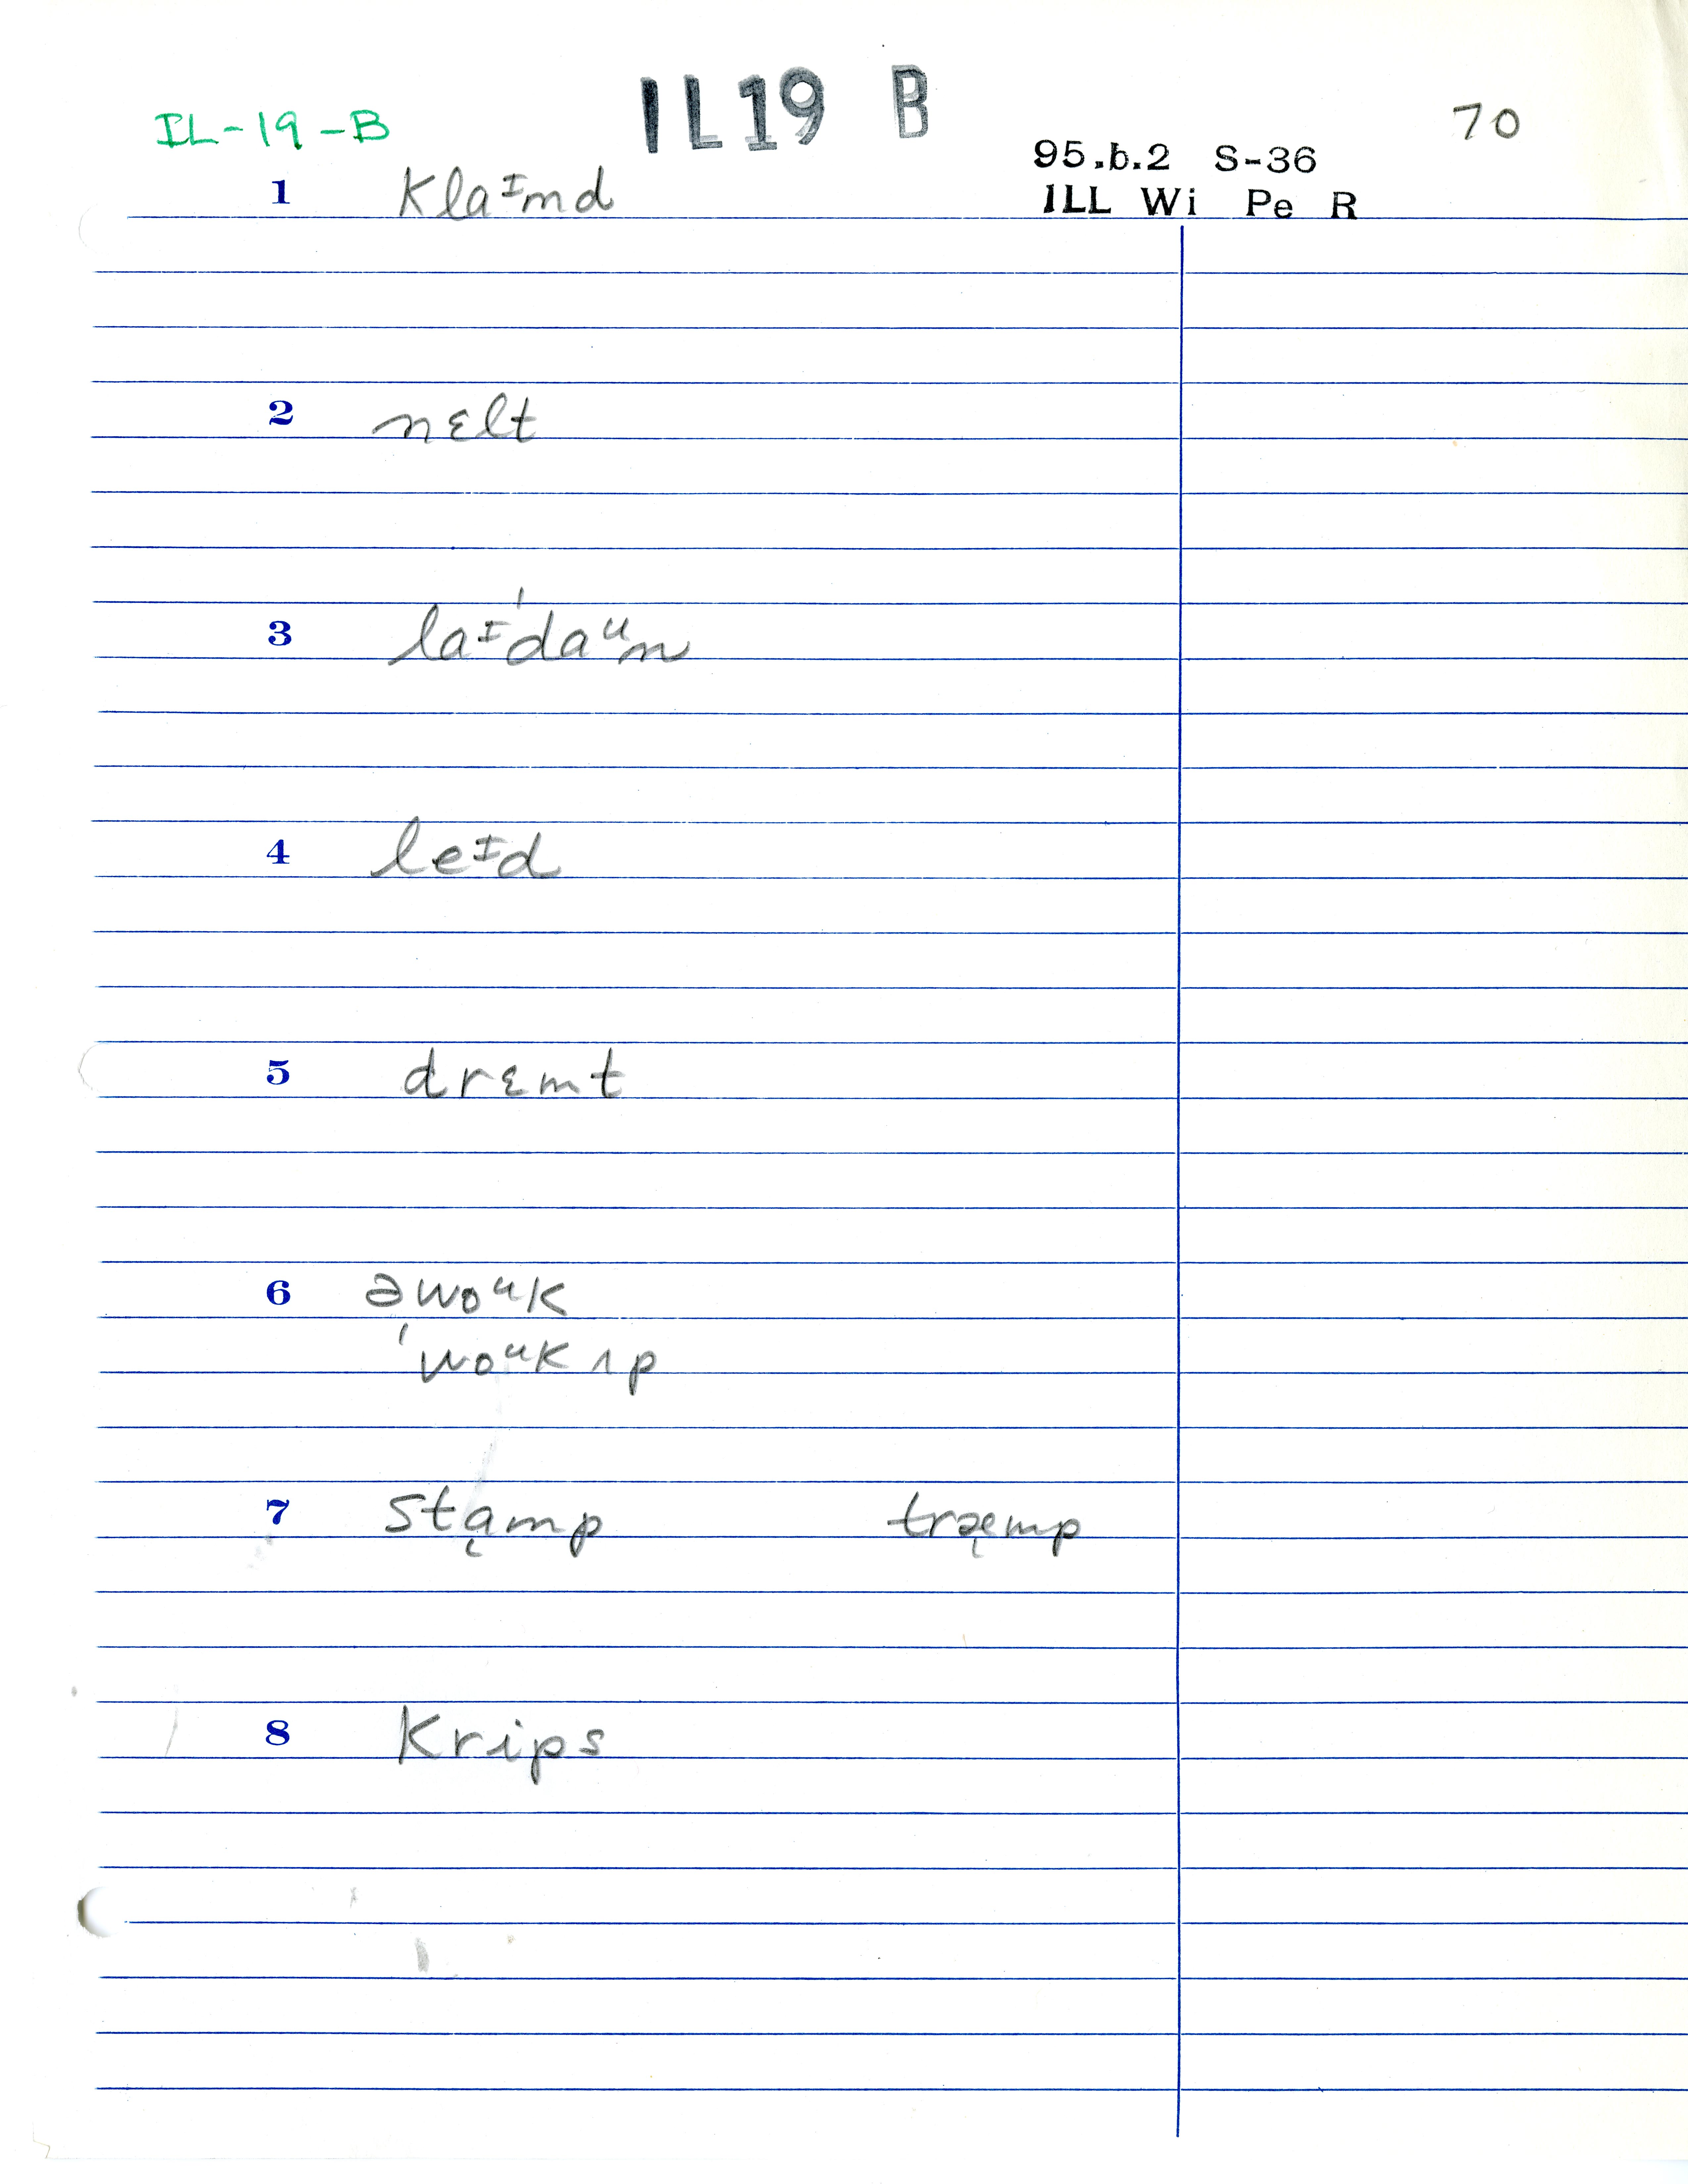 IL-19-B IL19 B 70
95.b.2 S-36
ILL Wi Pe R
1 klaᶦmd
2 nɛlt
3 laᶦˈdaᵘn
4 leᶦd
5 drɛmt
6 əwoᵘk
ˈwoᵘk ʌp
7 stɑ̨mp træ̨mp
8 krips